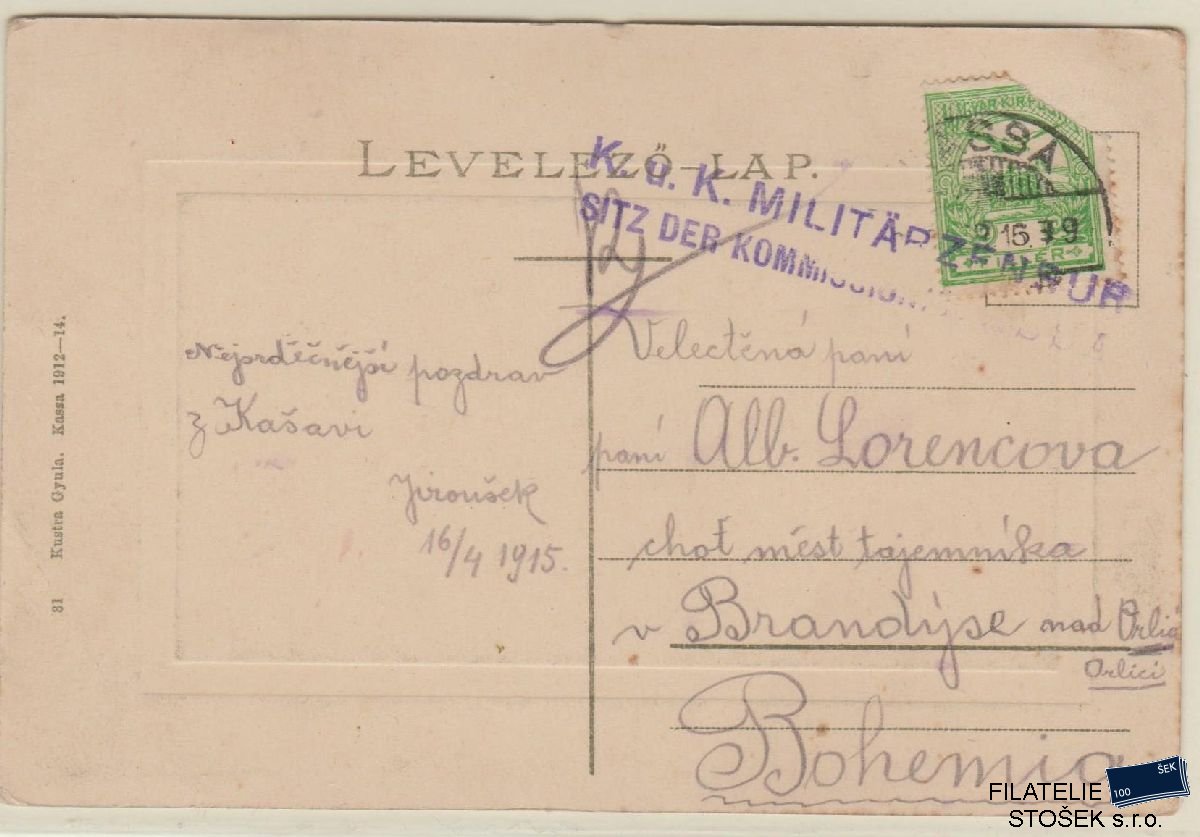 LEVELEZŐ-LAP.
K. u. K. MILITÄRZENSUR
SITZ DER KOMMISSION
MAGYAR KIR
SSA
15
FILLÉR
Nejsrděčnější pozdrav
z Kašavi
Jiroušek
16/4 1915.
Velectěná paní
paní Alb. Lorencova
choť měst tajemníka
v Brandýse nad Orlicí
Orlici
Bohemia
81 Kustra Gyula. Kassa 1912—14.
FILATELIE
STOŠEK s.r.o.
100
ŠEK